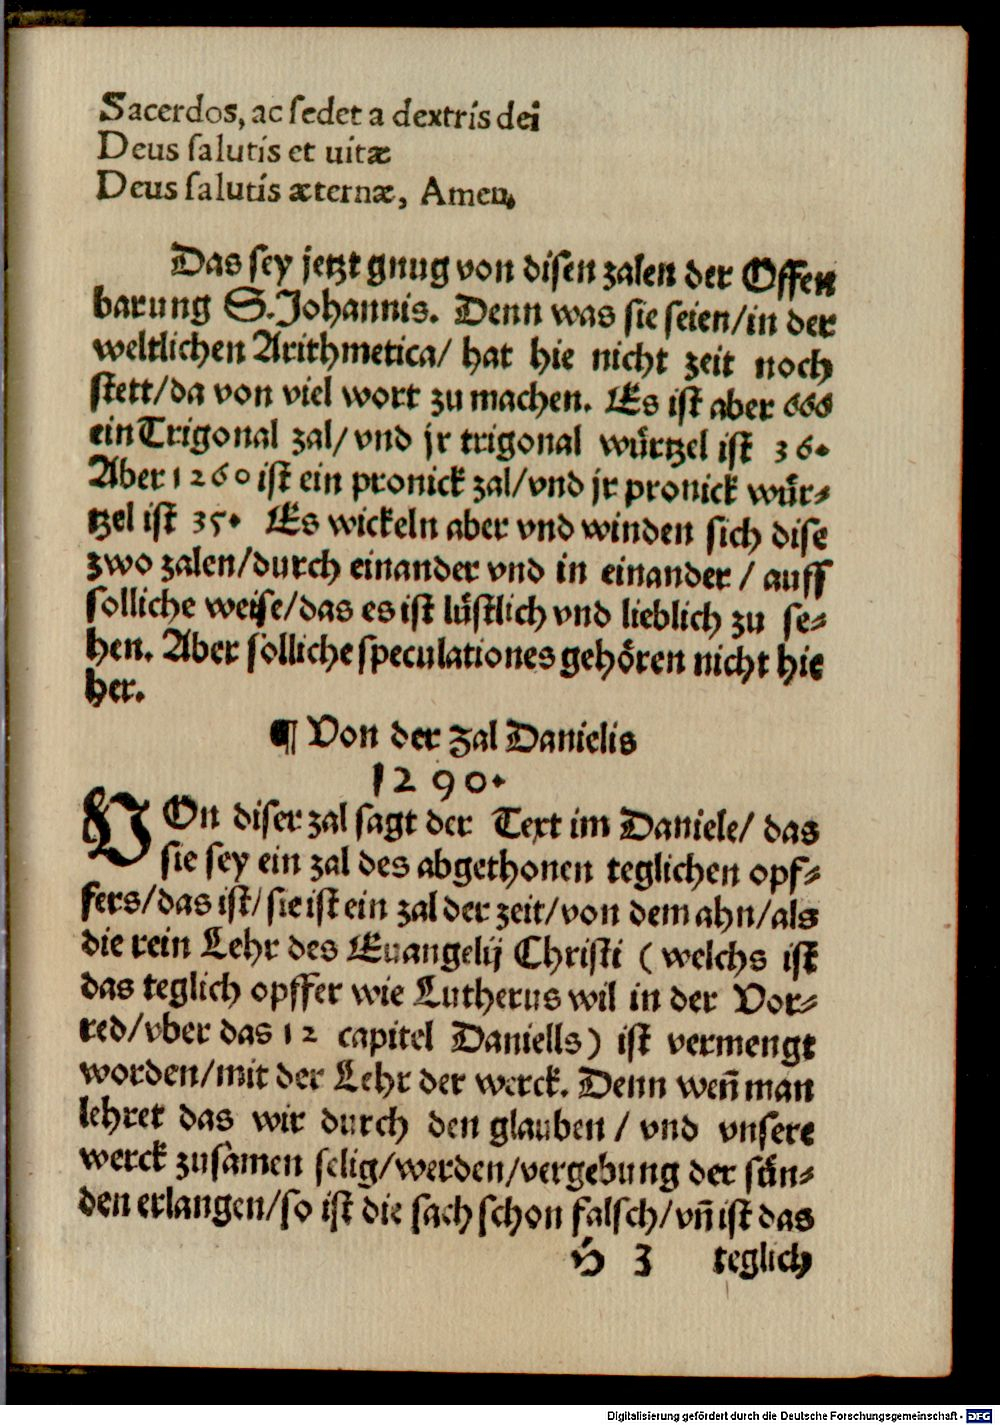 Sacerdos, ac ſedet a dextris dei
Deus ſalutis et uitæ
Deus ſalutis æternæ, Amen.
Das ſey jetzt gnug von diſen zalen der Offen
barung S. Johannis. Denn was ſie ſeien/in der
weltlichen Arithmetica/ hat hie nicht zeit noch
ſtett/da von viel wort zu machen. Es iſt aber 666
ein Trigonal zal/ vnd jr trigonal wuͤrtzel iſt 36.
Aber 1260 iſt ein pronick zal/vnd jr pronick wuͤr⸗
tzel iſt 35. Es wickeln aber vnd winden ſich diſe
zwo zalen/durch einander vnd in einander / auff
ſolliche weiſe/das es iſt luͤſtlich vnd lieblich zu ſe⸗
hen. Aber ſolliche ſpeculationes gehoͤren nicht hie
her.
¶ Von der Zal Danielis
1290.
VOn diſer zal ſagt der Text im Daniele/ das
ſie ſey ein zal des abgethonen teglichen opf⸗
fers/das iſt/ ſie iſt ein zal der zeit/von dem ahn/als
die rein Lehr des Euangelij Chriſti ( welchs iſt
das teglich opffer wie Lutherus wil in der Vor⸗
red/vber das 12 capitel Daniells) iſt vermengt
worden/mit der Lehr der werck. Denn weñ man
lehret das wir durch den glauben / vnd vnſere
werck zuſamen ſelig/werden/vergebung der ſuͤn⸗
den erlangen/ſo iſt die ſach ſchon falſch/vñ iſt das
H 3 teglich
Digitalisierung gefördert durch die Deutsche Forschungsgemeinschaft - DFG